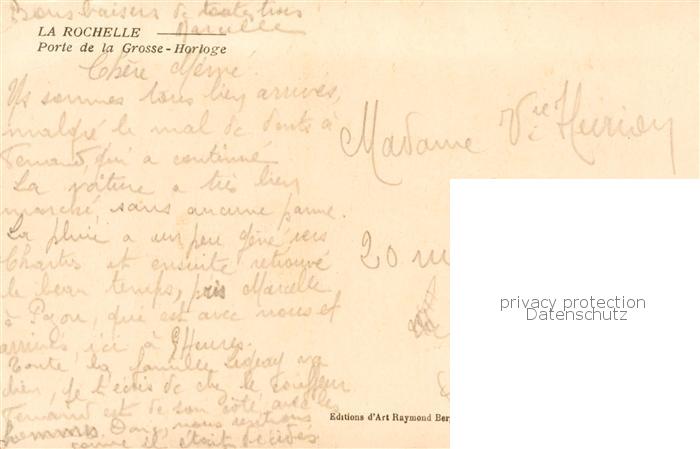 Bons baisers de toutes trois
Marcelle
LA ROCHELLE
Porte de la Grosse-Horloge
Chère Mémé
Ns sommes tous bien arrivés,
malgré le mal de dents à
Fernand, qui a continué
La voiture a très bien
marché, sans aucune panne.
La pluie a un peu gêné vers
Chartres et ensuite retrouvé
le beau temps, puis Marcelle
à, que est avec nous et
arrivés, ici à 9 Heures.
Toute la famille va
bien, je t'écris de chez le
Fernand est de son côté avec les
hommes. nous restions
comme il était décidé
Madame Vve
20
Editions d'Art Raymond Ber
privacy protection
Datenschutz